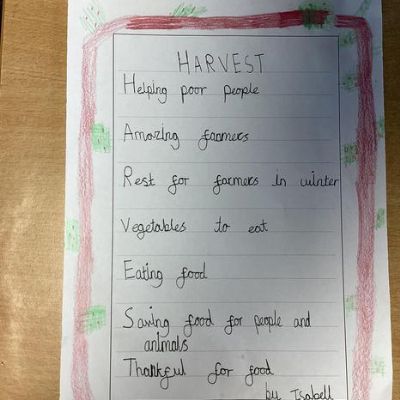 HARVEST
Helping poor people
Amazing faomers
Rest for farmers in winter
Vegetables to eat
Eating food
Saving food for people and
animals
Thankful for food
by Isabell